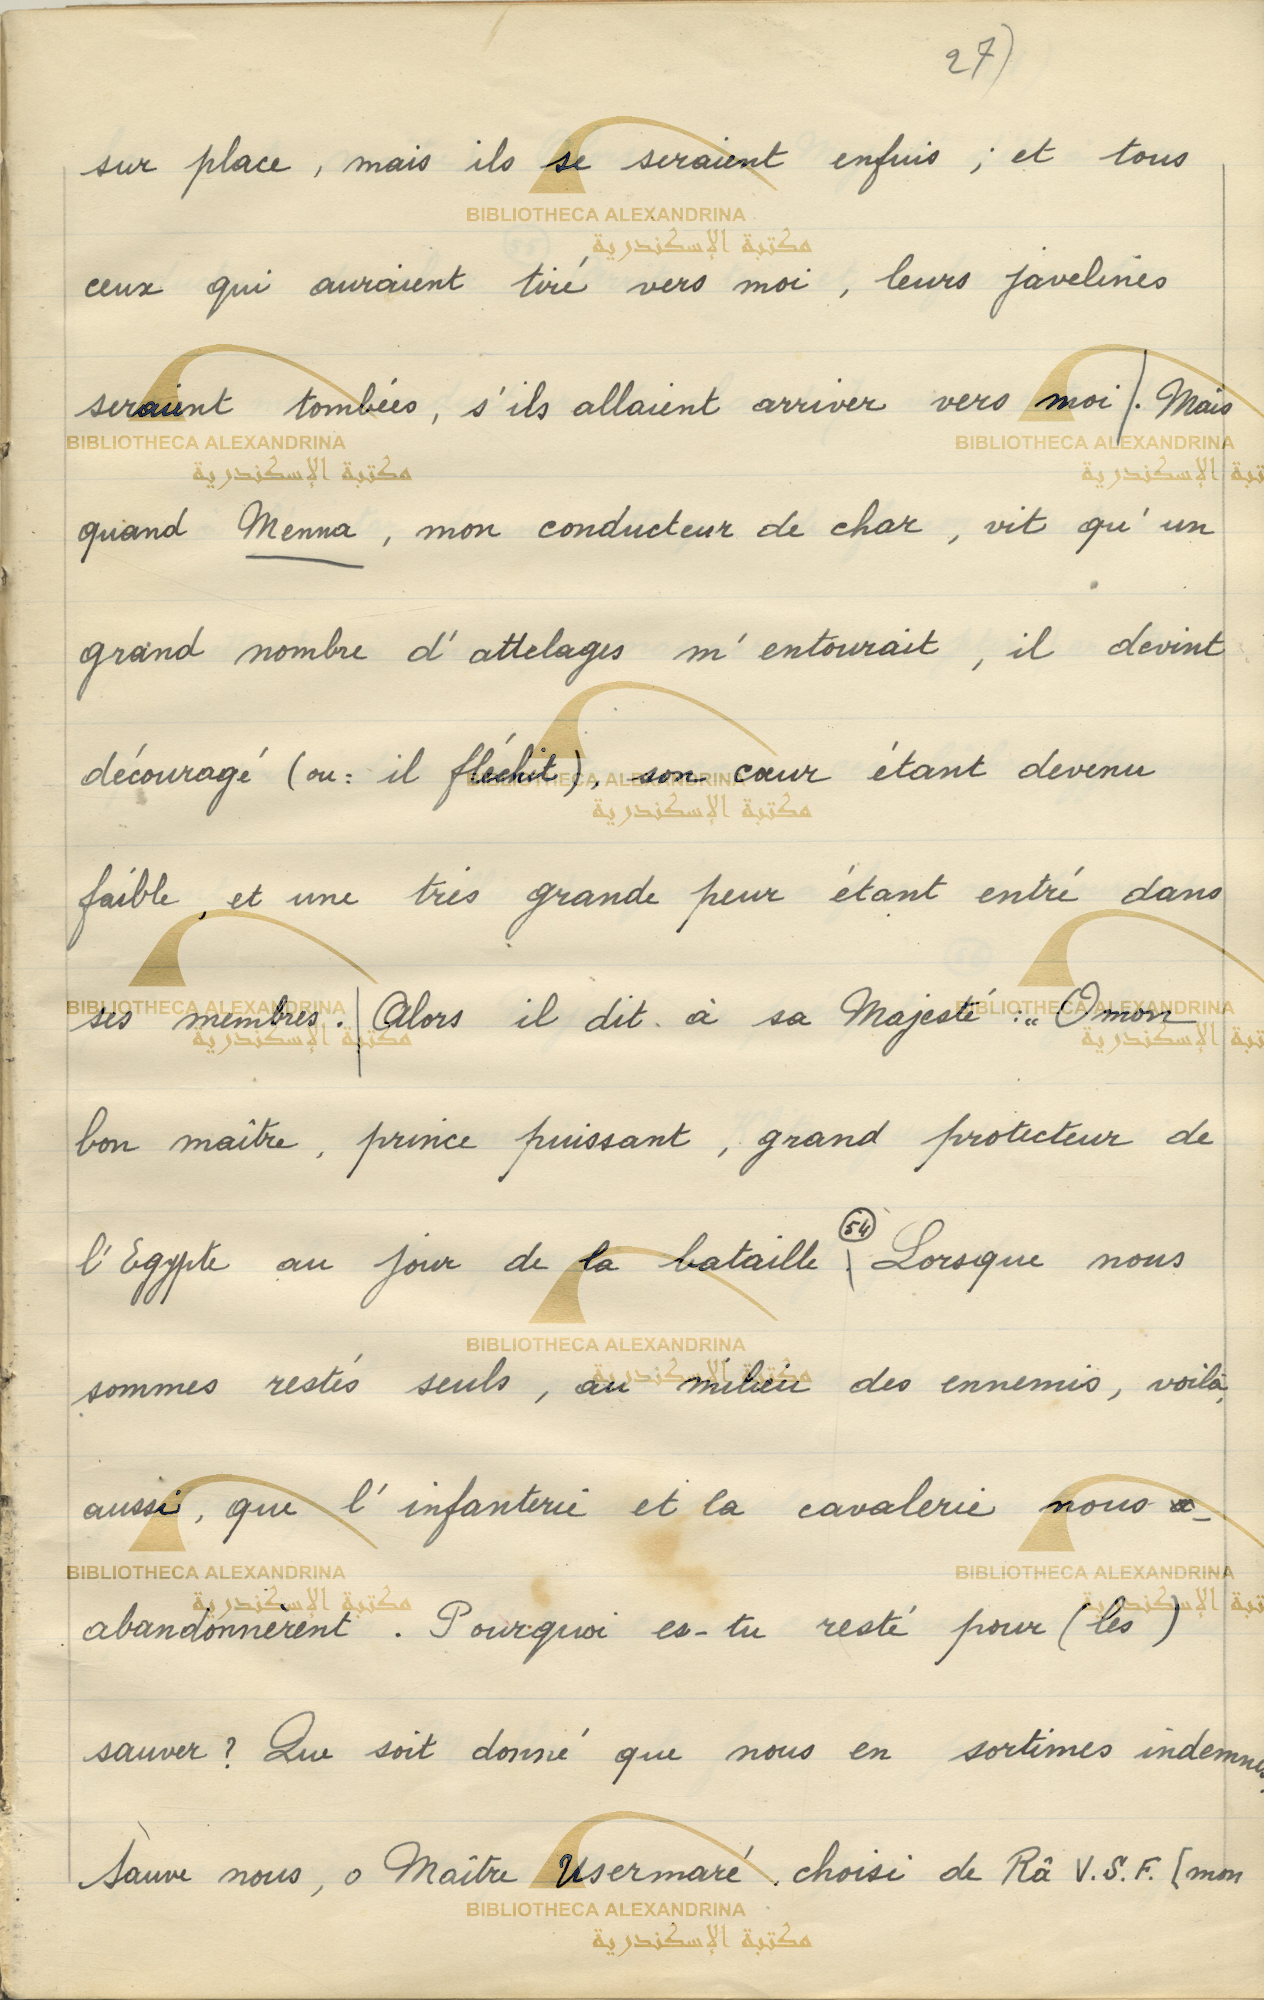 27)
sur place, mais ils se seraient enfuis ; et tous
ceux qui auraient tiré vers moi, leurs javelines
seraient tombées, s'ils allaient arriver vers moi). Mais
quand Menna, mon conducteur de char, vit qu'un
grand nombre d'attelages m'entourait, il devint
découragé (ou : il fléchit), son cœur étant devenu
faible, et une très grande peur étant entré dans
ses membres. | Alors il dit à sa Majesté : „ O mon
bon maître, prince puissant, grand protecteur de
l'Egypte au jour de la bataille (54) \. Lorsque nous
sommes restés seuls, au milieu des ennemis, voilà,
aussi, que l'infanterie et la cavalerie nous
abandonnèrent. Pourquoi es-tu resté pour (les)
sauver ? Que soit donné que nous en sortimes indemnes.
Sauve nous, o Maître Usermaré choisi de Râ V.S.F. [mon
BIBLIOTHECA ALEXANDRINA
مكتبة الإسكندرية